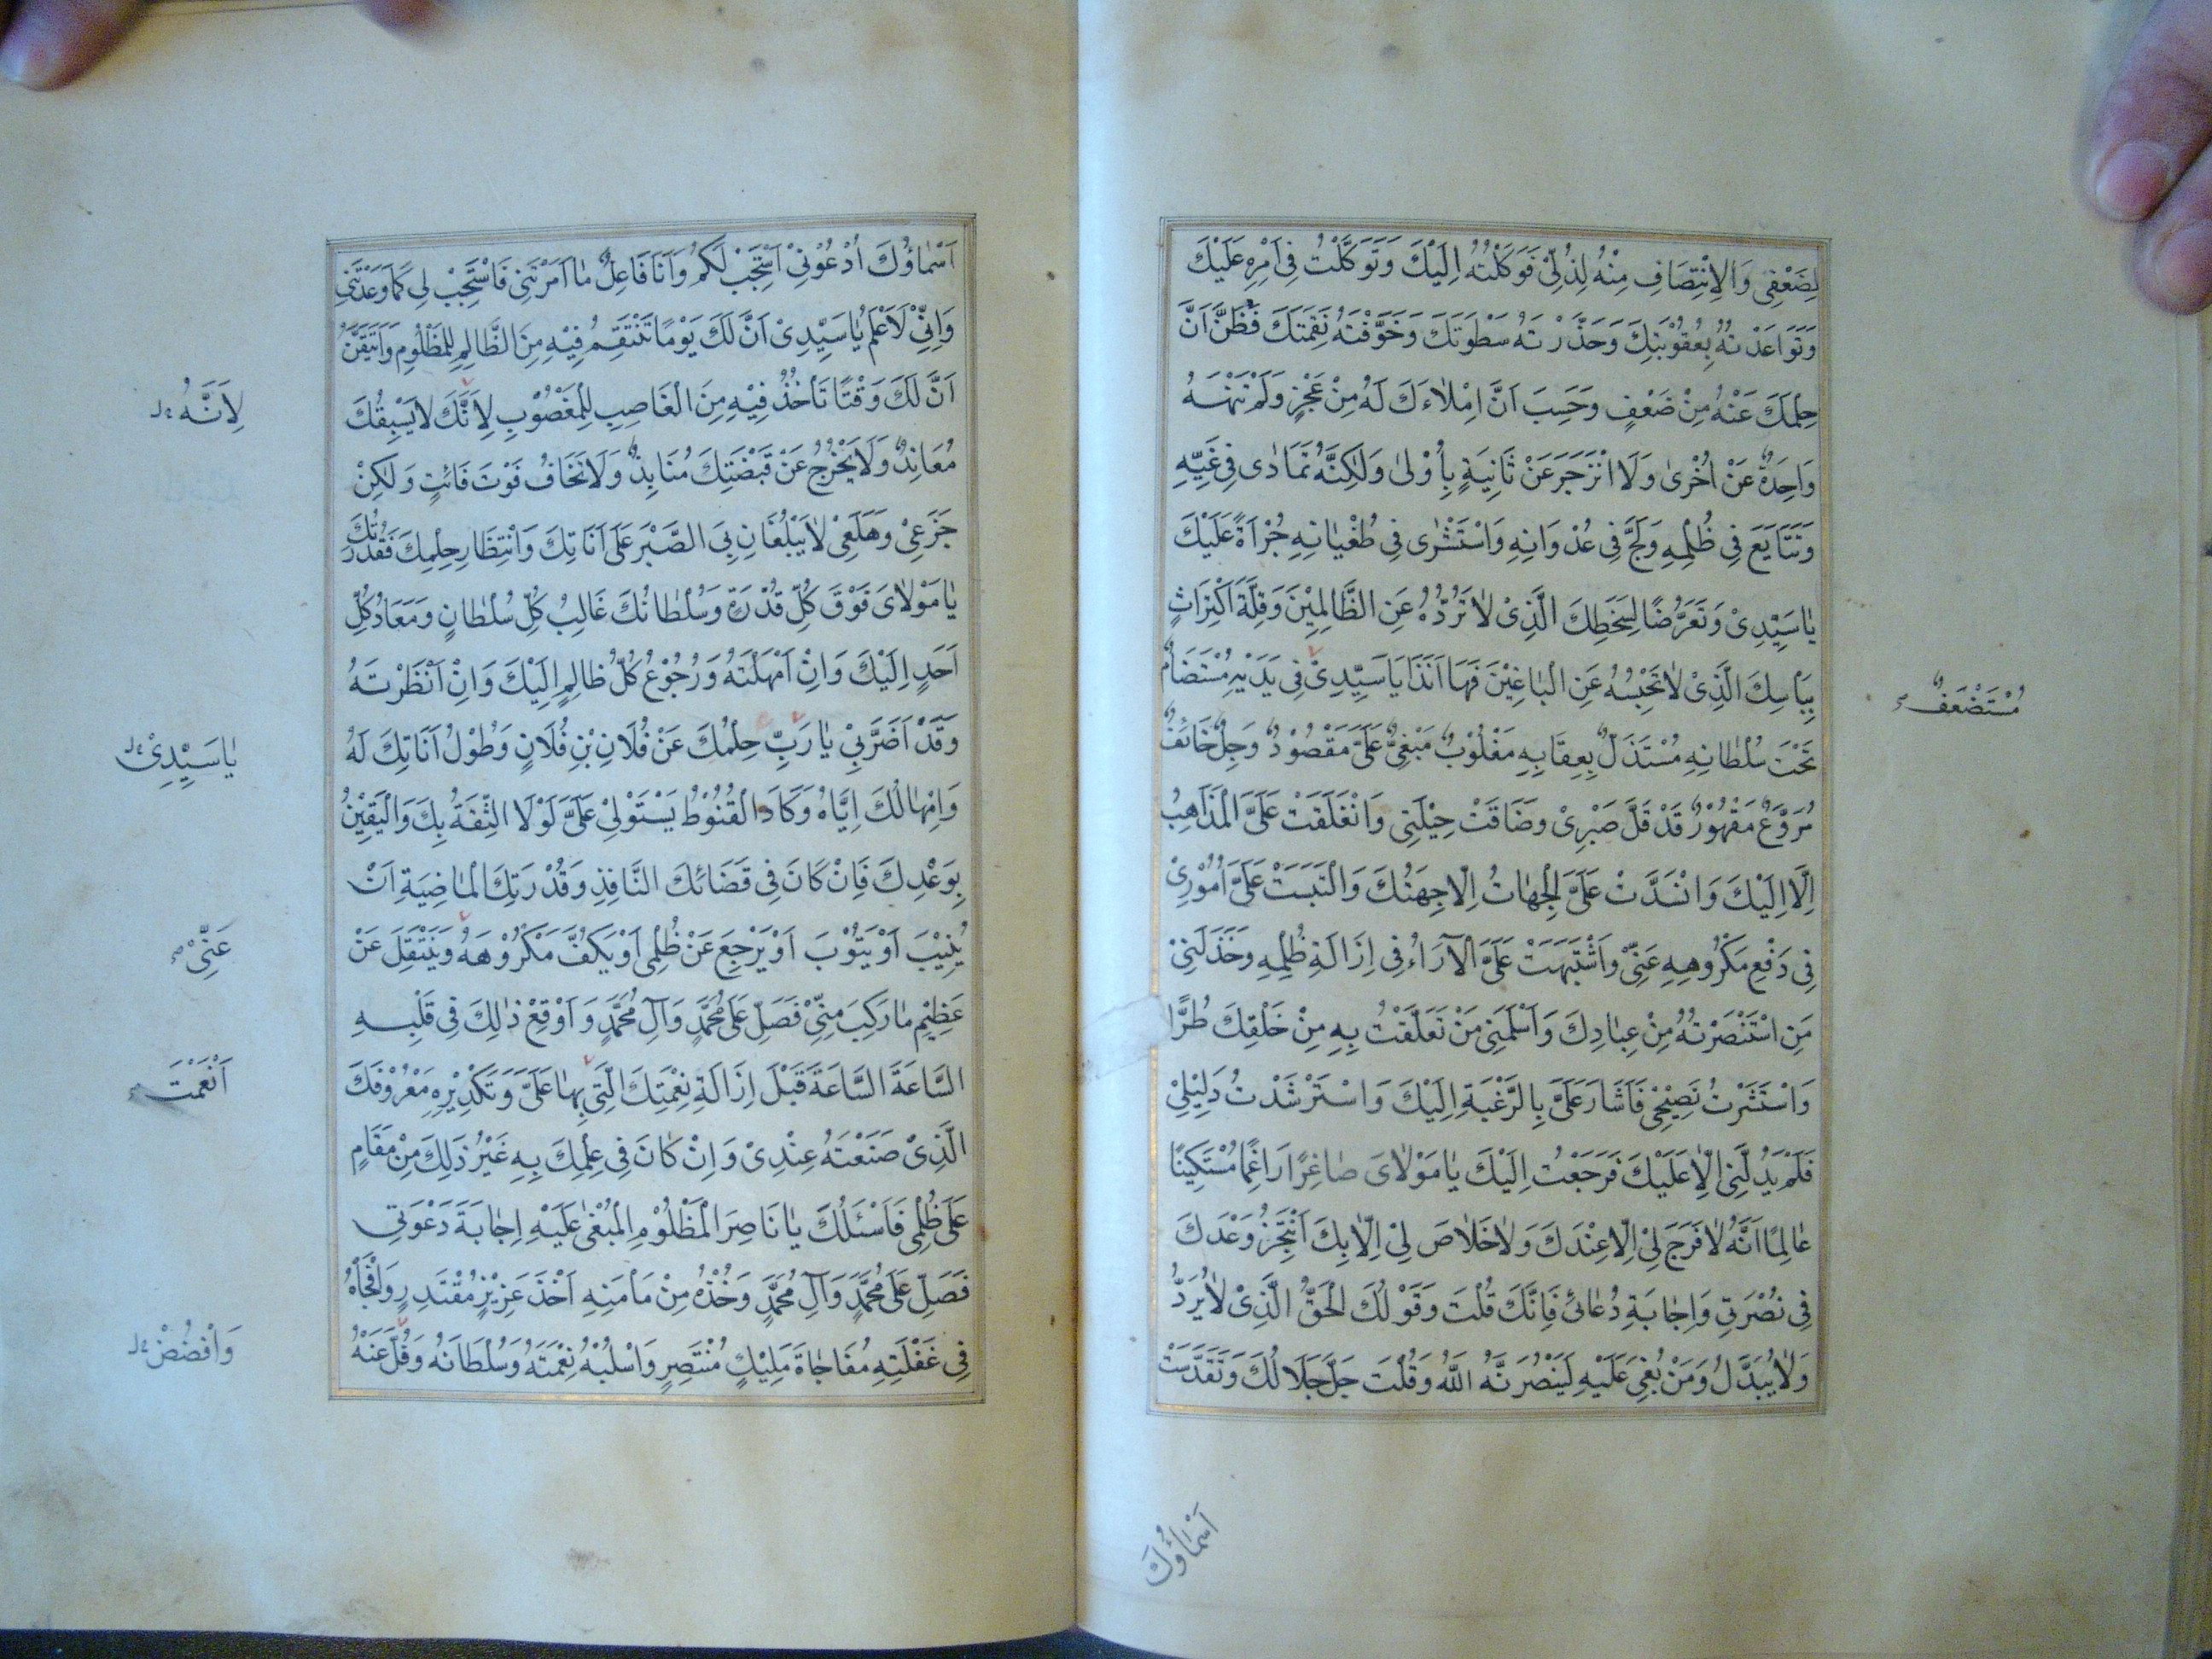 لِضَعْفِى وَالْاِنْتِصَافِ مِنْهُ لِذُلِّىْ فَوَكَلْتُهُ اِلَيْكَ وَتَوَكَّلْتُ فِى اَمْرِهِ عَلَيْكَ
وَتَوَاعَدْتُهُ بِعُقُوْبَتِكَ وَحَذَّرْتَهُ سَطْوَتَكَ وَخَوَّفْتَهُ نَقِمَتَكَ فَظَنَّ اَنَّ
حِلْمَكَ عَنْهُ مِنْ ضَعْفٍ وَحَسِبَ اَنَّ اِمْلَاءَكَ لَهُ مِنْ عَجْزٍ وَلَمْ تَنْهَهُ
وَاحِدَةٌ عَنْ اُخْرىٰ وَلَا انْزَجَرَ عَنْ ثَانِيَةٍ بِأُوْلىٰ وَلٰكِنَّهُ تَمَادٰى فِى غَيِّهِ
وَتَتَايَعَ فِى ظُلْمِهِ وَلَجَّ فِى عُدْوَانِهِ وَاسْتَشْرٰى فِى طُغْيَانِهِ جُرْأَةً عَلَيْكَ
يٰا سَيِّدِىْ وَتَعَرُّضًا لِسَخَطِكَ الَّذِىْ لٰا تَرُدُّهُ عَنِ الظَّالِمِيْنَ وَقِلَّةَ اكْتِرَاثٍ
بِبَأْسِكَ الَّذِىْ لٰا تَحْبِسُهُ عَنِ الْبَاغِيْنَ فَهَا اَنَذَا يَا سَيِّدِىْ فِى يَدَيْهِ مُسْتَضَامٌ
مُسْتَضْعَفٌ
تَحْتَ سُلْطَانِهِ مُسْتَذَلٌّ بِعِقَابِهِ مَغْلُوْبٌ مَبْغِىٌّ عَلَىَّ مَقْصُوْدٌ وَجِلٌ خَائِفٌ
مُرَوَّعٌ مَقْهُوْرٌ قَدْ قَلَّ صَبْرِىْ وَضَاقَتْ حِيْلَتِى وَانْغَلَقَتْ عَلَىَّ الْمَذَاهِبُ
اِلَّا اِلَيْكَ وَانْسَدَّتْ عَلَىَّ الْجِهَاتُ اِلَّا جِهَتُكَ وَالْتَبَسَتْ عَلَىَّ اُمُوْرِىْ
فِى دَفْعِ مَكْرُوهِهِ عَنِّىْ وَاشْتَبَهَتْ عَلَىَّ الْآرَاءُ فِى اِزَالَةِ ظُلْمِهِ وَخَذَلَنِىْ
مَنِ اسْتَنْصَرْتُهُ مِنْ عِبٰادِكَ وَاَسْلَمَنِى مَنْ تَعَلَّقْتُ بِهِ مِنْ خَلْقِكَ طُرًّا
وَاسْتَشَرْتُ نَصِيْحِى فَاَشَارَ عَلَىَّ بِالرَّغْبَةِ اِلَيْكَ وَاسْتَرْشَدْتُ دَلِيْلِىْ
فَلَمْ يَدُلَّنِى اِلَّا عَلَيْكَ فَرَجَعْتُ اِلَيْكَ يٰا مَوْلٰاىَ صٰاغِرًا رَاغِمًا مُسْتَكِينًا
عٰالِمًا اَنَّهُ لٰا فَرَجَ لِىْ اِلَّا عِنْدَكَ وَلٰا خَلٰاصَ لِىْ اِلَّا بِكَ اَنْتَجِزُ وَعْدَكَ
فِى نُصْرَتِى وَاِجٰابَةِ دُعٰائِى فَاِنَّكَ قُلْتَ وَقَوْلُكَ الْحَقُّ الَّذِىْ لٰا يُرَدُّ
وَلٰا يُبَدَّلُ وَمَنْ بُغِىَ عَلَيْهِ لَيَنْصُرَنَّهُ اللّٰهُ وَقُلْتَ جَلَّ جَلَالُكَ وَتَقَدَّسَتْ
اَسْمٰاؤُكَ
اَسْمٰاؤُكَ اُدْعُوْنِىْ اَسْتَجِبْ لَكُمْ وَاَنَا فَاعِلٌ مٰا اَمَرْتَنِى فَاسْتَجِبْ لِى كَمَا وَعَدْتَنِى
وَاِنِّىْ لَاَعْلَمُ يٰا سَيِّدِىْ اَنَّ لَكَ يَوْمًا تَنْتَقِمُ فِيْهِ مِنَ الظَّالِمِ لِلْمَظْلُوْمِ وَاَتَيَقَّنُ
اَنَّ لَكَ وَقْتًا تَأْخُذُ فِيْهِ مِنَ الْغَاصِبِ لِلْمَغْصُوْبِ لِاَنَّكَ لَا يَسْبِقُكَ
لِاَنَّهُ
مُعَانِدٌ وَلَا يَخْرُجُ عَنْ قَبْضَتِكَ مُنَابِذٌ وَلَا تَخَافُ فَوْتَ فَائِتٍ وَلٰكِنْ
جَزَعِىْ وَهَلَعِىْ لَا يَبْلُغَانِ بِىَ الصَّبْرَ عَلَى اَنَاتِكَ وَانْتِظَارِ حِلْمِكَ فَقُدْرَتُكَ
يٰا مَوْلٰاىَ فَوْقَ كُلِّ قُدْرَةٍ وَسُلْطَانُكَ غَالِبُ كُلِّ سُلْطَانٍ وَمَعَادُ كُلِّ
اَحَدٍ اِلَيْكَ وَاِنْ اَمْهَلْتَهُ وَرُجُوْعُ كُلِّ ظَالِمٍ اِلَيْكَ وَاِنْ اَنْظَرْتَهُ
وَقَدْ اَضَرَّ بِىْ يٰا رَبِّ حِلْمُكَ عَنْ فُلَانِ بْنِ فُلَانٍ وَطُوْلُ اَنَاتِكَ لَهُ
يٰا سَيِّدِىْ
وَاِمْهٰالُكَ اِيَّاهُ وَكَادَ الْقُنُوْطُ يَسْتَوْلِىْ عَلَىَّ لَوْلَا الثِّقَةُ بِكَ وَالْيَقِيْنُ
بِوَعْدِكَ فَاِنْ كَانَ فِى قَضَائِكَ النَّافِذِ وَقُدْرَتِكَ الْمَاضِيَةِ اَنْ
يُنِيْبَ اَوْ يَتُوْبَ اَوْ يَرْجِعَ عَنْ ظُلْمِى اَوْ يَكُفَّ مَكْرُوْهَهُ وَيَنْتَقِلَ عَنْ
عَنِّىْ
عَظِيْمِ مٰا رَكِبَ مِنِّىْ فَصَلِّ عَلٰى مُحَمَّدٍ وَآلِ مُحَمَّدٍ وَاَوْقِعْ ذٰلِكَ فِى قَلْبِهِ
السَّاعَةَ السَّاعَةَ قَبْلَ اِزَالَةِ نِعْمَتِكَ الَّتِى بِهٰا عَلَىَّ وَتَكْدِيْرِهِ مَعْرُوْفَكَ
اَنْعَمْتَ
الَّذِىْ صَنَعْتَهُ عِنْدِىْ وَاِنْ كَانَ فِى عِلْمِكَ بِهِ غَيْرُ ذٰلِكَ مِنْ مَقَامٍ
عَلٰى ظُلْمِى فَاَسْئَلُكَ يٰا نَاصِرَ الْمَظْلُوْمِ الْمَبْغٰى عَلَيْهِ اِجٰابَةَ دَعْوَتِى
فَصَلِّ عَلٰى مُحَمَّدٍ وَآلِ مُحَمَّدٍ وَخُذْهُ مِنْ مَأْمَنِهِ اَخْذَ عَزِيْزٍ مُقْتَدِرٍ وَافْجَأْهُ
فِى غَفْلَتِهِ مُفَاجٰاةَ مَلِيْكٍ مُنْتَصِرٍ وَاسْلُبْهُ نِعْمَتَهُ وَسُلْطَانَهُ وَفُلَّ عَنْهُ
وَافْضُضْ